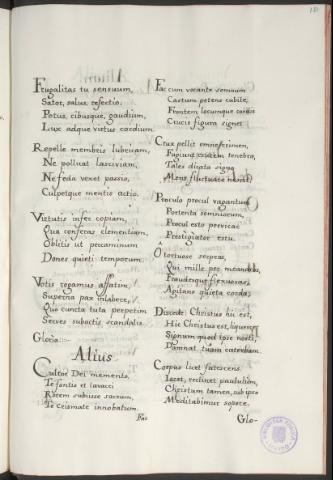 Frugalitas tu sensuum,
Sator, salus refectio,
Potus, cibusque, gaudium,
Lux adque virtus cordium.
Repelle membris lubricam,
Ne polluat lasciviam,
Ne feda vexet passio,
Culpetque mentis actio.
Virtutis infer copiam,
Qua conferas clementiam,
Oblitis ut peccaminum
Dones quieti temporum.
Votis rogamus affatim,
Superna pax inlabere,
Quo cuncta tuta perpetim
Serves subactis scandalis.
Gloria
Alius.
Cultor Dei memento,
Te fontis et lavacri
Rorem subiisse sacrum,
Te crismate innobatum.
Fac
Fac cum vocante somnum
Castum petens cubile,
Frontem locumque cordis
Crucis figura signes.
Crux pellit omne crimen,
Fugiunt crucem tenebre,
Tales dicata signa
Mens fluctuare nescit.
Proculo procul vagantum
Portenta somniorum,
Procul esto pervicaci
Prestigiator estu.
O tortuose serpens,
Qui mille per meandros,
Fraudesque flexuosas
Agitans quieta corda.
Discede: Christus hic est,
Hic Christus est, liquesce,
Signum quod ipse nosti,
Damnat tuam catervam.
Corpus licet fatescens
Iacet, reclinet paululum,
Christum tamen, sub ipso
Meditabimur sopore.
Glo-